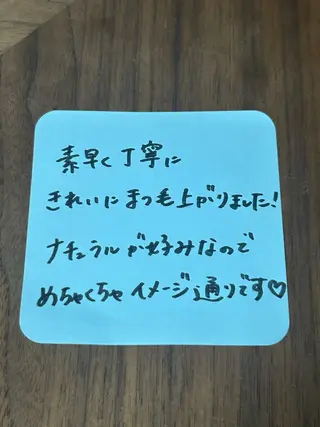 素早く丁寧に
きれいにまつ毛上がりました!
ナチュラルが好みなので
めちゃくちゃイメージ通りです♡